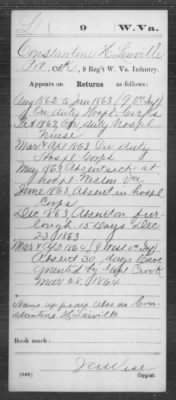 L 9 W.Va.
Constantine H Linville
Pvt., Co. K, 9 Reg't W. Va. Infantry.
Appears on Returns as follows:
Aug 1862 to Jan 1863
On duty Hospl. Corps
Oct 1862 On duty Hospl
Nurse
Mar & Apr 1863 On duty
Hospl Corps
May 1863 Absent sick at
Hospl
June 1863 Absent in hospl
Corps
Dec 1863 Absent on fur-
lough 15 days Dec
23 1863
Mar & Apr 1864
Absent 30 days leave
Granted by Genl Crook
Mar 28, 1864
Name appears also as Con-
stantine H Linville
Book mark:
(646) Copyist.